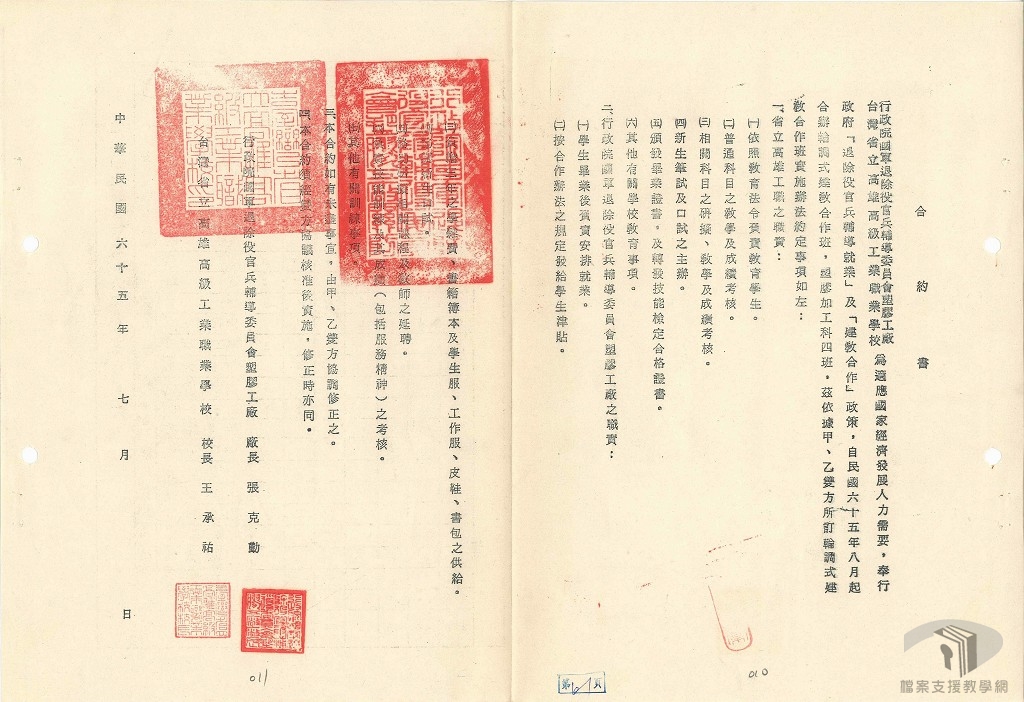 合約書
行政院國軍退除役官兵輔導委員會塑膠工廠
台灣省立高雄高級工業職業學校
為適應國家經濟發展人力需要,奉行
政府「退除役官兵輔導就業」及「建教合作」政策,自民國六十五年八月起
合辦輪調式建教合作班,塑膠加工科四班,茲依據甲、乙雙方所訂輪調式建
教合作班實施辦法約定事項如左:
一、省立高雄工職之職責:
㈠依照教育法令負責教育學生。
㈡普通科目之教學及成績考核。
㈢相關科目之研擬、教學及成績考核。
㈣新生筆試及口試之主辦。
㈤頒發畢業證書。及轉發技能檢定合格證書。
㈥其他有關學校教育事項。
二、行政院國軍退除役官兵輔導委員會塑膠工廠之職責:
㈠學生畢業後負責安排就業。
㈡按合作辦法之規定發給學生津貼。
書籍簿本及學生服、工作服、皮鞋、書包之供給。
教師之延聘。
(包括服務精神)之考核。
其他有關訓練事項。
三、本合約如有未盡事宜,由甲、乙雙方協調修正之。
四、本合約須經雙方協議核准後實施,修正時亦同。
行政院國軍退除役官兵輔導委員會塑膠工廠 廠長 張克勤
台灣省立高雄高級工業職業學校 校長 王承祐
中華民國六十五年七月 日
011
第 頁
010
檔案支援教學網